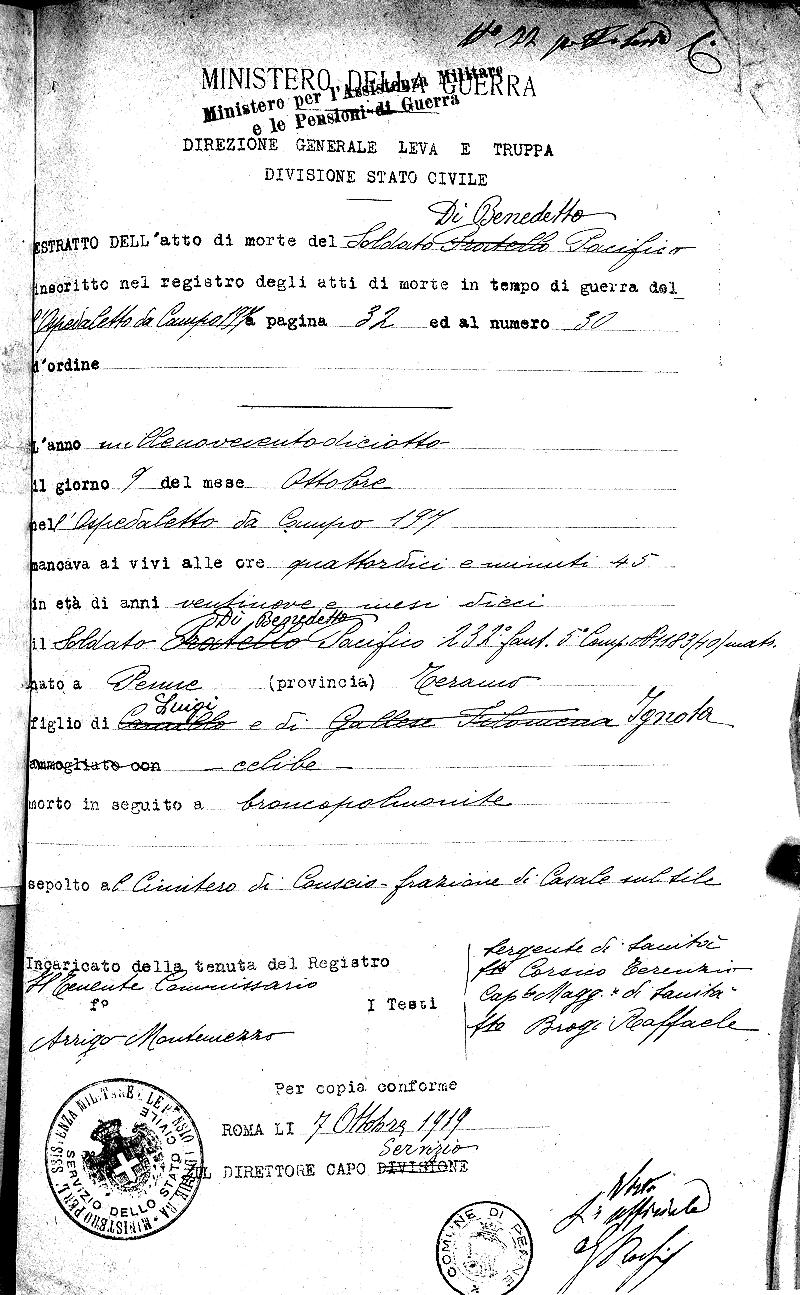 N° 22
MINISTERO DELLA GUERRA
Ministero per l'Assistenza Militare
e le Pensioni di Guerra
DIREZIONE GENERALE LEVA E TRUPPA
DIVISIONE STATO CIVILE
Di Benedetto
ESTRATTO DELL'atto di morte del Soldato Fratello Pacifico
inscritto nel registro degli atti di morte in tempo di guerra del
l'Ospedaletto da Campo 197 a pagina 32 ed al numero 30
d'ordine
L'anno millenovecentodiciotto
il giorno 9 del mese Ottobre
nell'Ospedaletto da Campo 197
mancava ai vivi alle ore quattordici e minuti 45
in età di anni ventinove e mesi dieci
Di Benedetto
il Soldato Fratello Pacifico 232° fant. 5° Comp.
nato a Penne (provincia) Teramo
Luigi
figlio di Camillo e di Gallese Filomena Ignota
ammogliato con - celibe -
morto in seguito a broncopolmonite
sepolto al Cimitero di Conscio - frazione di Casale sul Sile
Incaricato della tenuta del Registro
Il Tenente Commissario
f°
Arrigo Montemezzo
I Testi
Sergente di Sanità
fto Corsico Terenzio
Cap.le Magg.e di Sanità
fto Brogi Raffaele
Per copia conforme
ROMA LI 7 Ottobre 1919
Servizio
IL DIRETTORE CAPO DIVISIONE
MINISTERO PER L'ASSISTENZA MILITARE E LE PENSIONI DI GUERRA
SERVIZIO DELLO STATO CIVILE
COMUNE DI PENNE
Visto